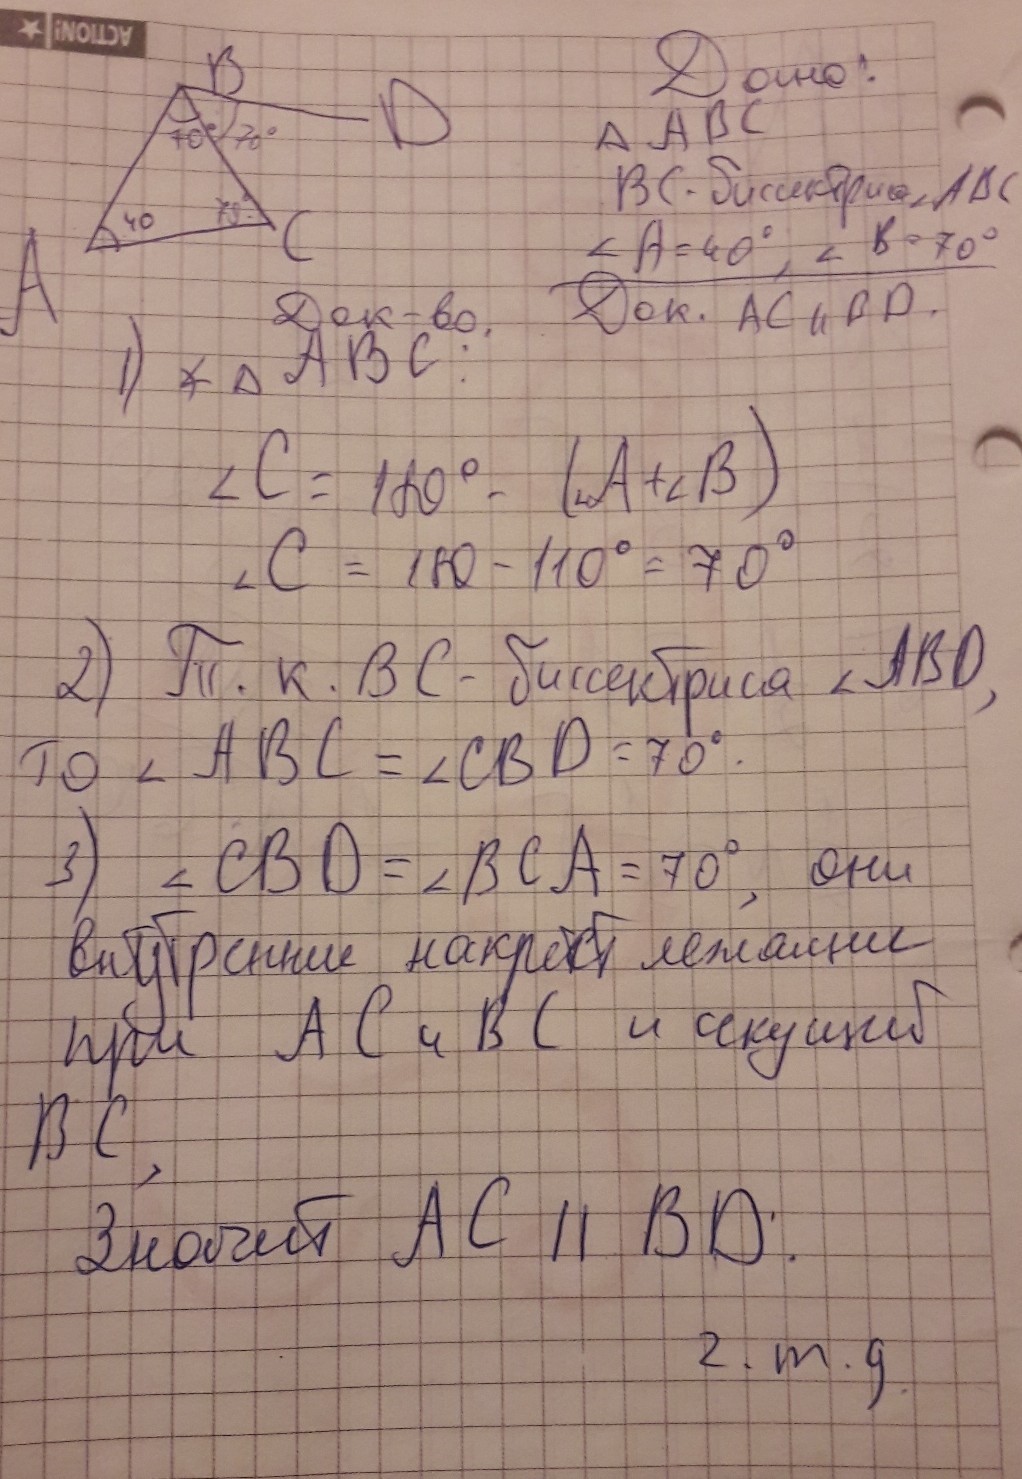 ACTION!
B
D
70° 70°
40 70°
A
C
Дано:
△ ABC
BC - биссектриса ∠ABC
∠A=40°, ∠B=70°
Док. AC || BD.
Док-во.
1) △ ABC:
∠C = 180° - (∠A+∠B)
∠C = 180 - 110° = 70°
2) Т. к. BC - биссектриса ∠ABD,
то ∠ABC = ∠CBD = 70°.
3) ∠CBD = ∠BCA = 70°, они
внутренние накрест лежащие
при AC и BC и секущей
BC,
Значит AC || BD.
ч. т. д